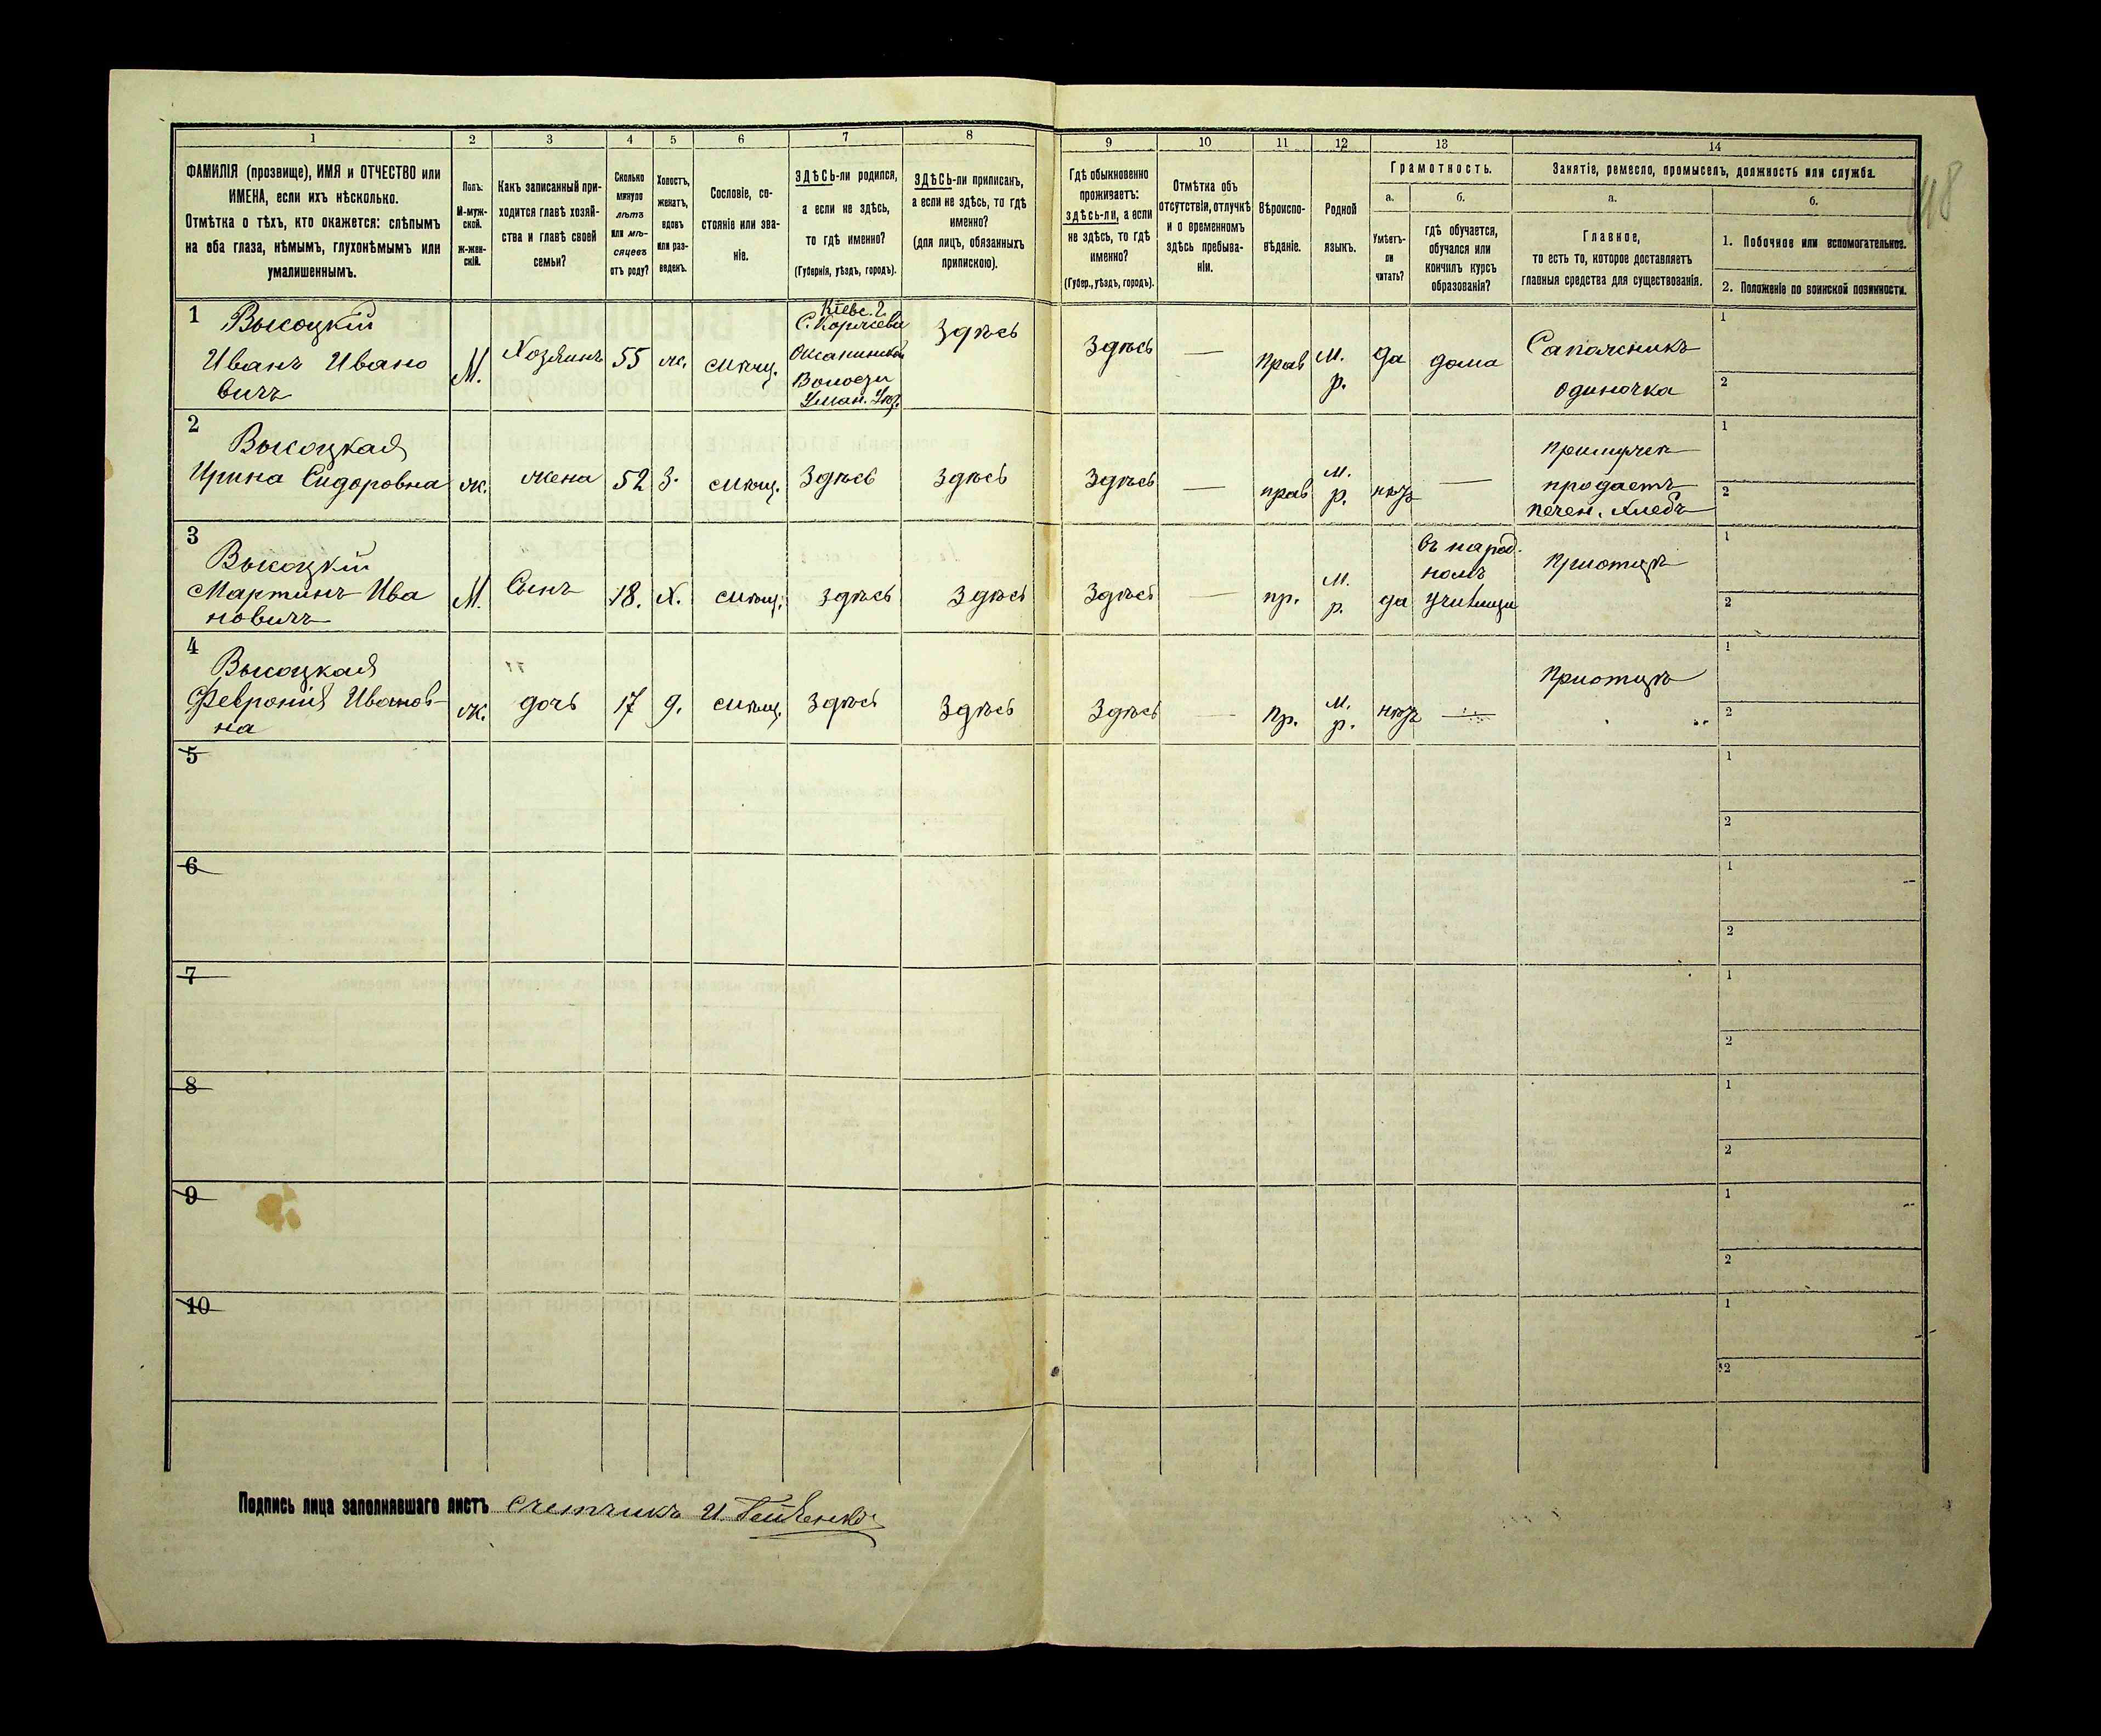 1 2 3 4 5 6 7 8 9 10 11 12 13 14
ФАМИЛІЯ (прозвище), ИМЯ и ОТЧЕСТВО или
ИМЕНА, если ихъ нѣсколько.
Отмѣтка о тѣхъ, кто окажется: слѣпымъ
на оба глаза, нѣмымъ, глухонѣмымъ или
умалишеннымъ.
Полъ:
М-муж-
ской.
Ж-жен-
скій.
Какъ записанный при-
ходится главѣ хозяй-
ства и главѣ своей
семьи?
Сколько
минуло
лѣтъ
или мѣ-
сяцевъ
отъ роду?
Холостъ,
женатъ,
вдовъ
или раз-
веденъ.
Сословіе, со-
стояніе или зва-
ніе.
ЗДѢСЬ-ли родился,
а если не здѣсь,
то гдѣ именно?
(Губернія, уѣздъ, городъ).
ЗДѢСЬ-ли приписанъ,
а если не здѣсь, то гдѣ
именно?
(для лицъ, обязанныхъ
припискою).
Гдѣ обыкновенно
проживаетъ:
здѣсь-ли, а если
не здѣсь, то гдѣ
именно?
(Губер., уѣздъ, городъ).
Отмѣтка объ
отсутствіи, отлучкѣ
и о временномъ
здѣсь пребыва-
ніи.
Вѣроиспо-
вѣданіе.
Родной
языкъ.
Грамотность.
а.
Умѣетъ-
ли
читать?
б.
гдѣ обучается,
обучался или
кончилъ курсъ
образованія?
Занятіе, ремесло, промыселъ, должность или служба.
а.
Главное,
то есть то, которое доставляетъ
главныя средства для существованія.
б.
1. Побочное или вспомогательное.
2. Положеніе по воинской повинности.
1
Высоцкій
Иванъ Ивано
вичъ
М.
Хозяинъ
55
ж.
мѣщ.
Кіевс. г.
Волости
Уман. Уѣз.
Здѣсь
Здѣсь
—
Прав
М.
р.
да
дома
Сапожникъ
одиночка
1
2
2
Высоцкая
Ирина Сидоровна
ж.
жена
52
З.
мѣщ.
Здѣсь
Здѣсь
Здѣсь
—
прав
м.
р.
нѣтъ
—
продаетъ
печен. хлебъ
1
2
3
Высоцкій
Мартинъ Ива
новичъ
М.
Сынъ
18.
Х.
мѣщ.
Здѣсь
Здѣсь
Здѣсь
—
пр.
м.
р.
да
въ народ-
номъ
училищи
При отцѣ
1
2
4
Высоцкая
Февронія Иванов-
на
ж.
дочь
17
д.
мѣщ.
Здѣсь
Здѣсь
Здѣсь
—
Пр.
м.
р.
нѣтъ
—
При отцѣ
1
2
5
1
2
6
1
2
7
1
2
8
1
2
9
1
2
10
1
2
Подпись лица заполнявшаго листъ счетчикъ И.